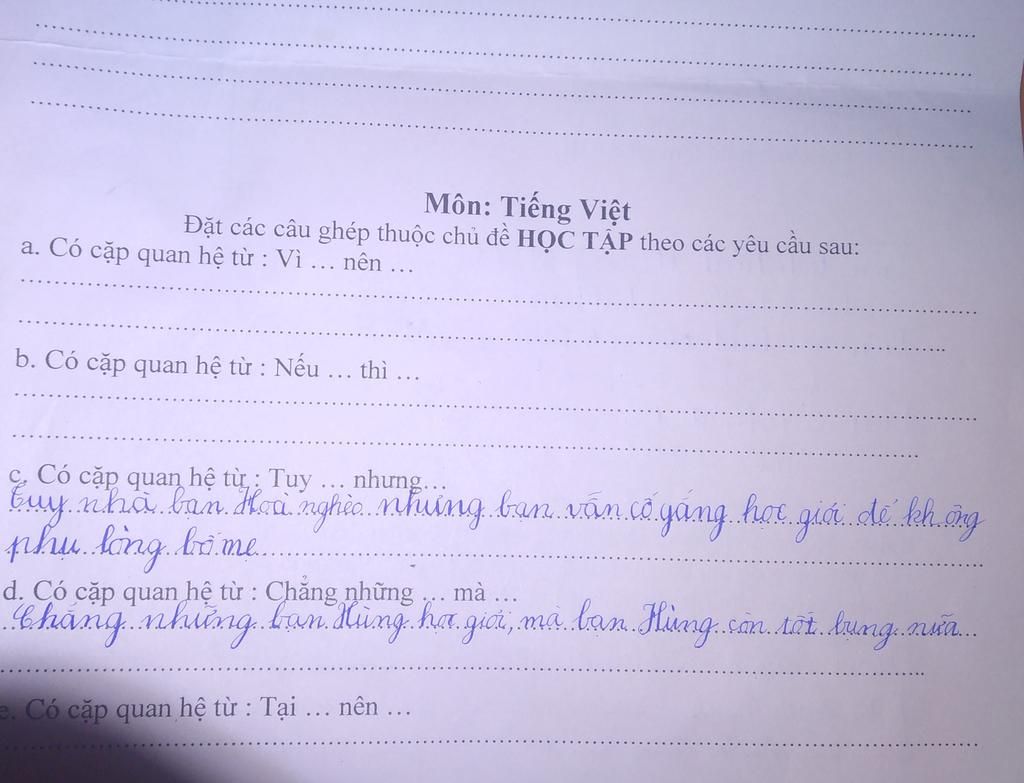 Môn: Tiếng Việt
Đặt các câu ghép thuộc chủ đề HỌC TẬP theo các yêu cầu sau:
a. Có cặp quan hệ từ : Vì ... nên ...
b. Có cặp quan hệ từ : Nếu ... thì ...
c. Có cặp quan hệ từ : Tuy ... nhưng...
Tuy nhà bạn Hoà nghèo nhưng bạn vẫn cố gắng học giỏi để không
phụ lòng bố mẹ
d. Có cặp quan hệ từ : Chẳng những ... mà ...
Chẳng những bạn Hùng học giỏi, mà bạn Hùng còn tốt bụng nữa
e. Có cặp quan hệ từ : Tại ... nên ...